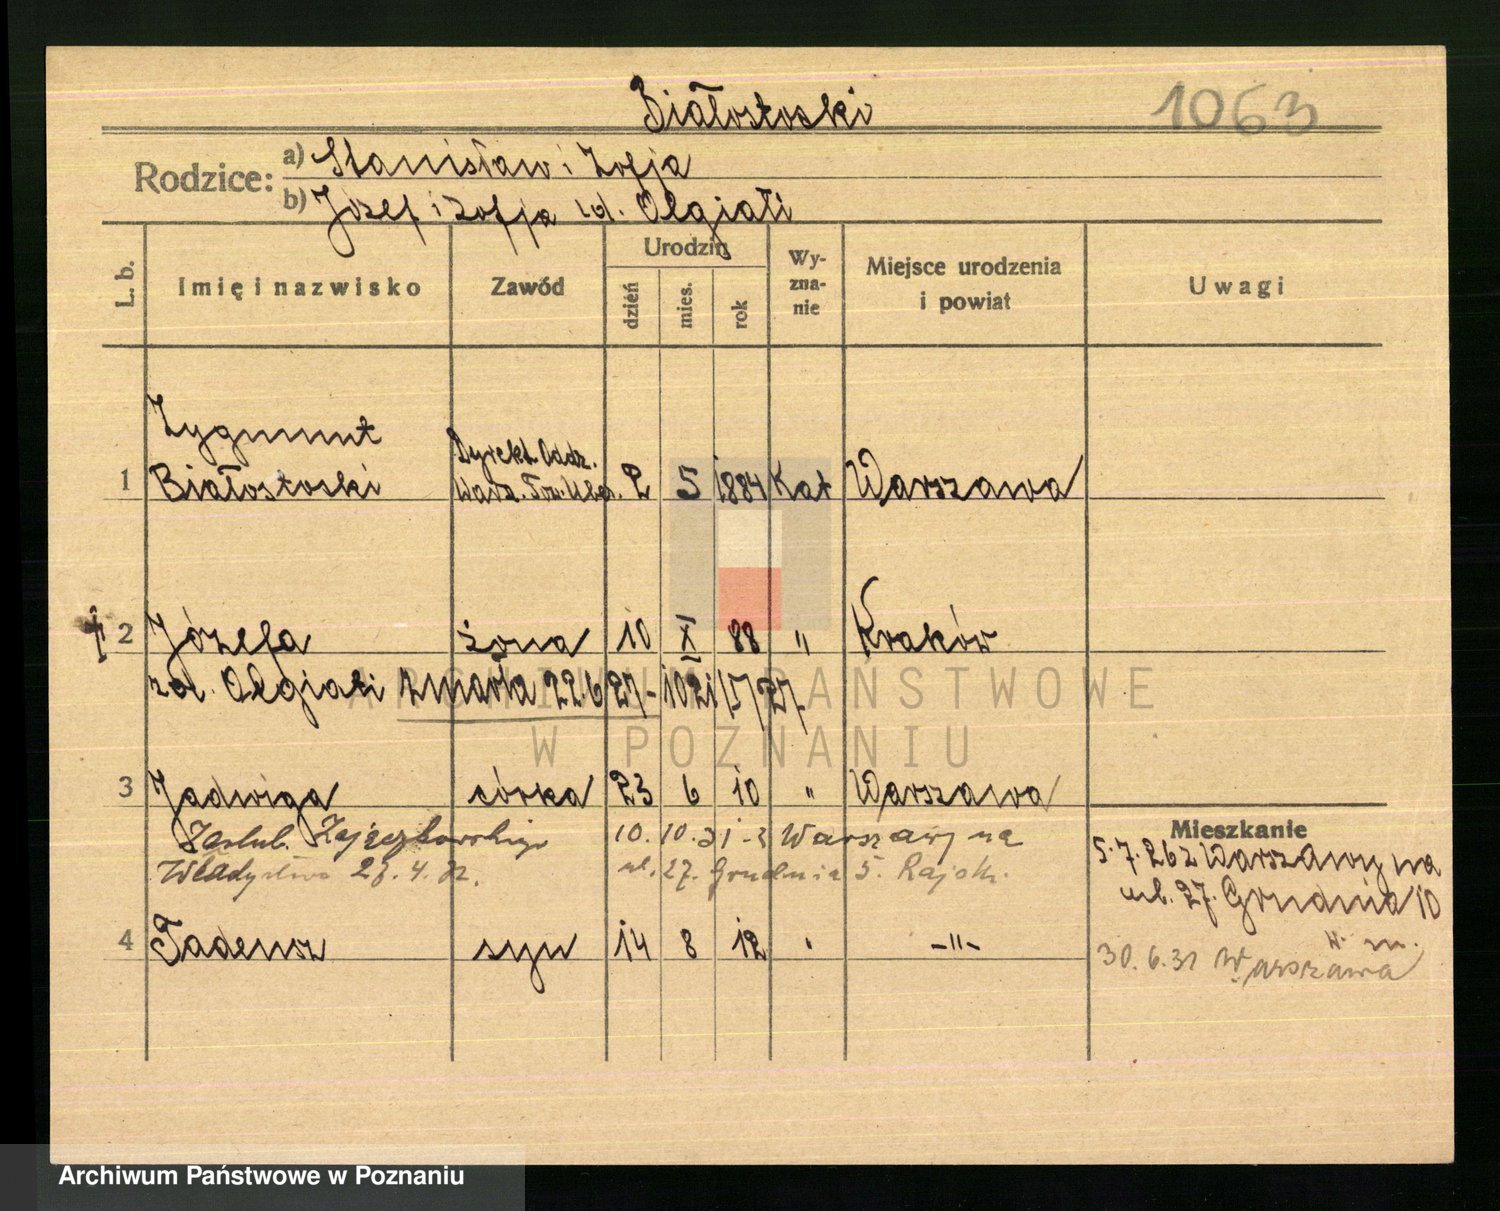 Białostoski
1063
Rodzice:
a) Stanisław i Zofja
b) Józef i Zofja zd. Olgiati
L. b.
Imię i nazwisko
Zawód
Urodzin
dzień
mies.
rok
Wy-
zna-
nie
Miejsce urodzenia
i powiat
Uwagi
Zygmunt
Dyrekt. Oddz.
1 Białostoski Warsz. Tow. Ubez. 2 5 1884 Kat Warszawa
2 Józefa żona 10 X 88 " Kraków
zd. Olgiati zmarła 22.6 27 - 1021/5/27
3 Jadwiga córka 23 6 10 " Warszawa
Zaślub. Zajączkowskiego
Władysława 23. 4. 32.
10. 10. 31 - z Warszawy na
ul. 27. Grudnia 5.
4 Tadeusz syn 14 8 12 " -"-
Mieszkanie
5.7.26 z Warszawy na
ul. 27. Grudnia 10
30.6.31 Warszawa
ARCHIWUM PAŃSTWOWE
W POZNANIU
Archiwum Państwowe w Poznaniu